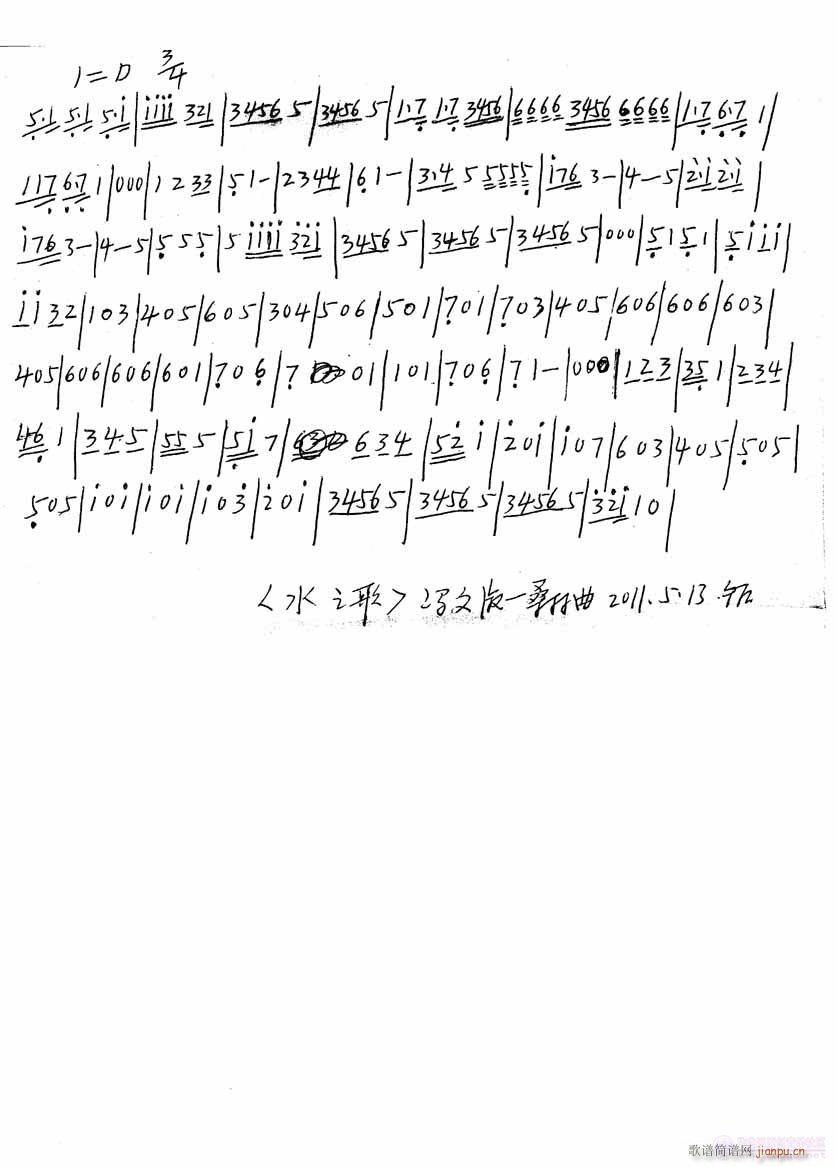 1=D 3/4
5·1 5·1 5·i|iiii 321|3456 5|3456 5|1·7 1·7 3456|6666 3456 6666|1·7 6·7 1|
117 6·7 1|000|1233|51-|2344|61-|3·4 5 5555|i76 3-|4-5|2·i 2·i|
i76 3-|4-5|555|5 iiii 32i|3456 5|3456 5|3456 5|000|5151|5iii|
ii32|103|405|605|304|506|501|701|703|405|606|606|603|
405|606|606|601|706|7 01|101|706|71-|000|123|351|234|
461|34·5|555|5i7|634|52i|20i|i07|603|405|505|
505|i0i|i0i|i03|20i|3456 5|3456 5|3456 5|32i10|
<水之形> 曲 2011.5.13
歌谱简谱网 jianpu.cn